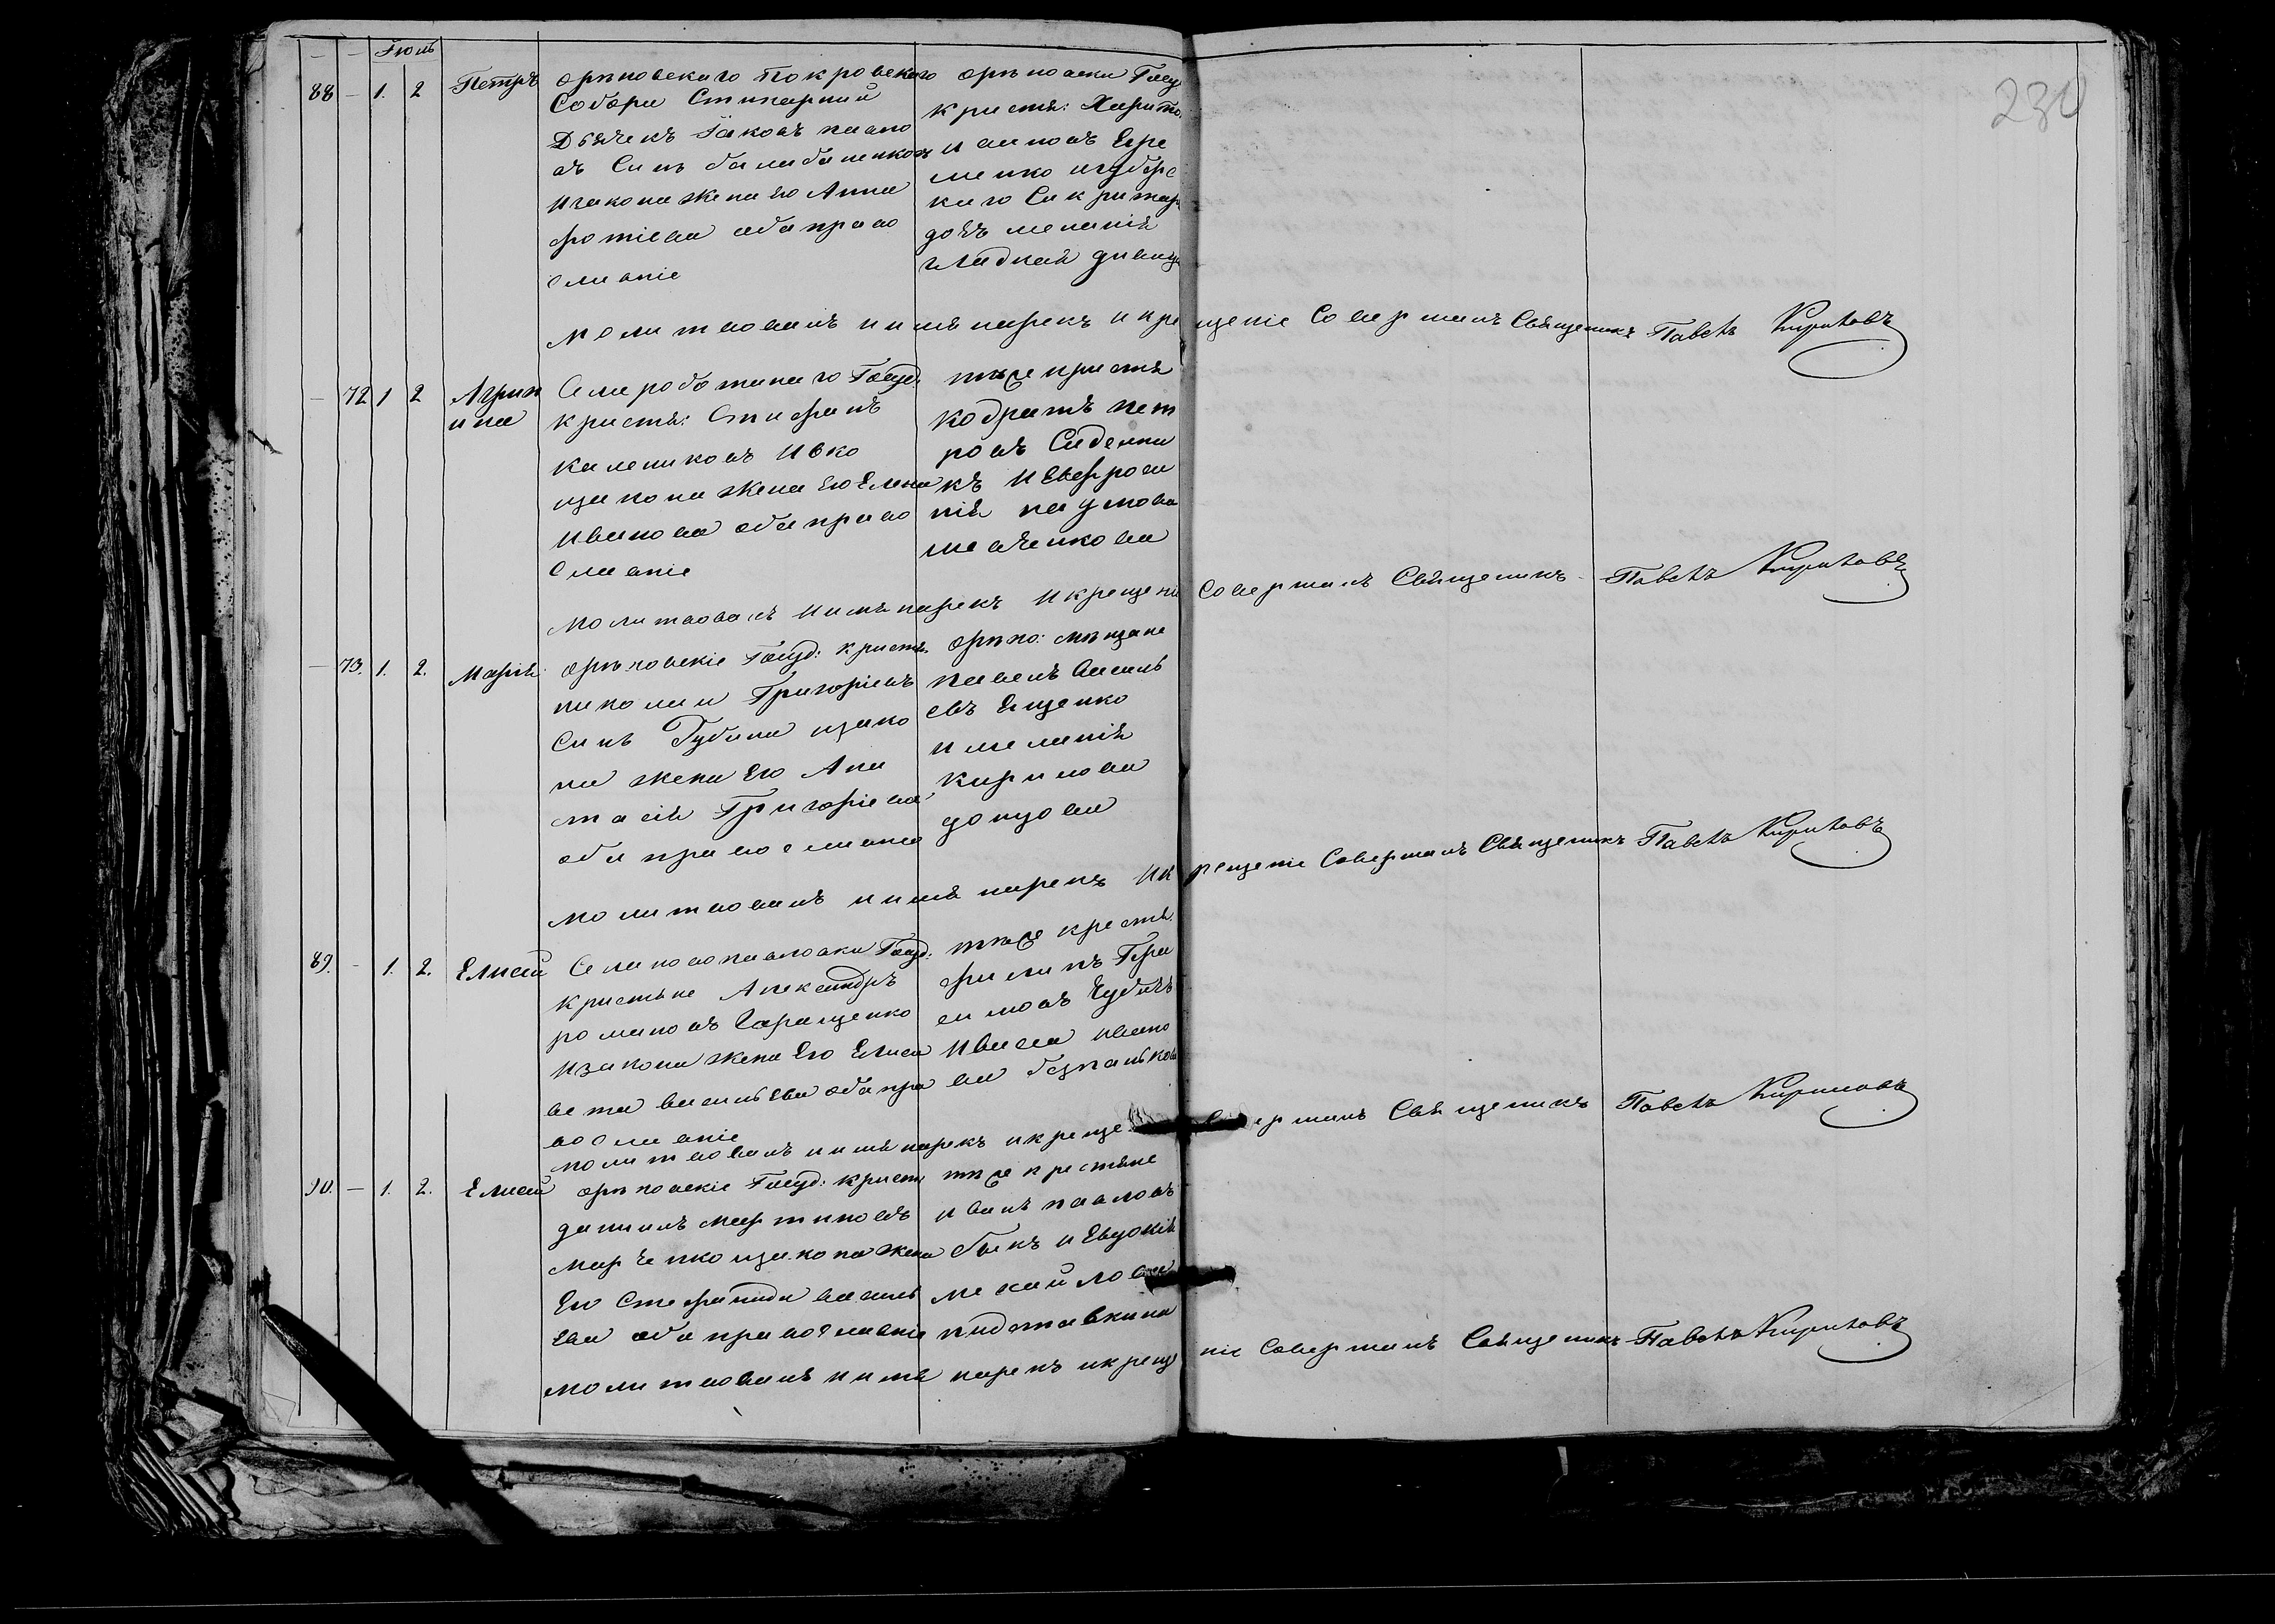 Іюль
230
88 — 1. 2 Петръ Орѣховскаго Покровскаго
Собора Стихарный
Дьячекъ Іаковъ Павло
въ Синъ Балабаненковъ
изакона жена его Анна
Фотіева оба право
славніе
Орѣховски Госуд
крестя: Харито
Ивановъ Ере
менко игубер
каго Сикритар
дочъ Меланія
Гладкая дивица
Молитвовалъ иимя нарекъ икре щеніе Совершилъ Священикъ Павелъ Кириловъ
— 72 1 2 Агрип
ина
Села роботинаго Госуд:
крестя: Стифанъ
Калениковъ Ивко
изакона жена Его Елена
Иванова оба право
славніе
тиже кристя
Кодратъ Пет
ровъ Сиделни
къ и Евфроси
нія Наумова
Шевченкова
Молитвовалъ иимя нарекъ икрещеніе Совершилъ Священикъ Павелъ Кириловъ
— 73. 1. 2. Марія Орѣховскіе Госуд: кристя.
Николай Григоріевъ
Синъ Губина изако
на жена Его Ана
стасія Григоріева
оба православніе
Орѣхо: мѣщане
Павелъ Василь
евъ Ещенко
и Меланія
Кирилова
Донцова
Молитвовалъ иимя нарекъ ик рещеніе Совершилъ Священикъ Павелъ Кириловъ
89. — 1. 2. Елисей Села новопавловки Госуд:
кристяне Александръ
Романовъ Геращенко
изакона жена Его Елиса
вета Васильева оба пра
вославніе
тиже крестя.
Филипъ Гера
симовъ
Иваса Ивано
ва Безпалькова
Молитвовалъ иимя нарекъ икреще ершилъ Священикъ Павелъ Кириловъ
90. — 1. 2. Елисей Орѣховскіе Госуд: кристя
Данилъ Мартиновъ
Марченко изакона жена
Его Стефанида Василь
ева оба православніе
тиже крестяне
Иванъ Павловъ
Бикъ и Евдокія
Мехайлова
Пидставкина
Молитвовалъ иимя нарекъ икреще ніе Совершилъ Священикъ Павелъ Кириловъ